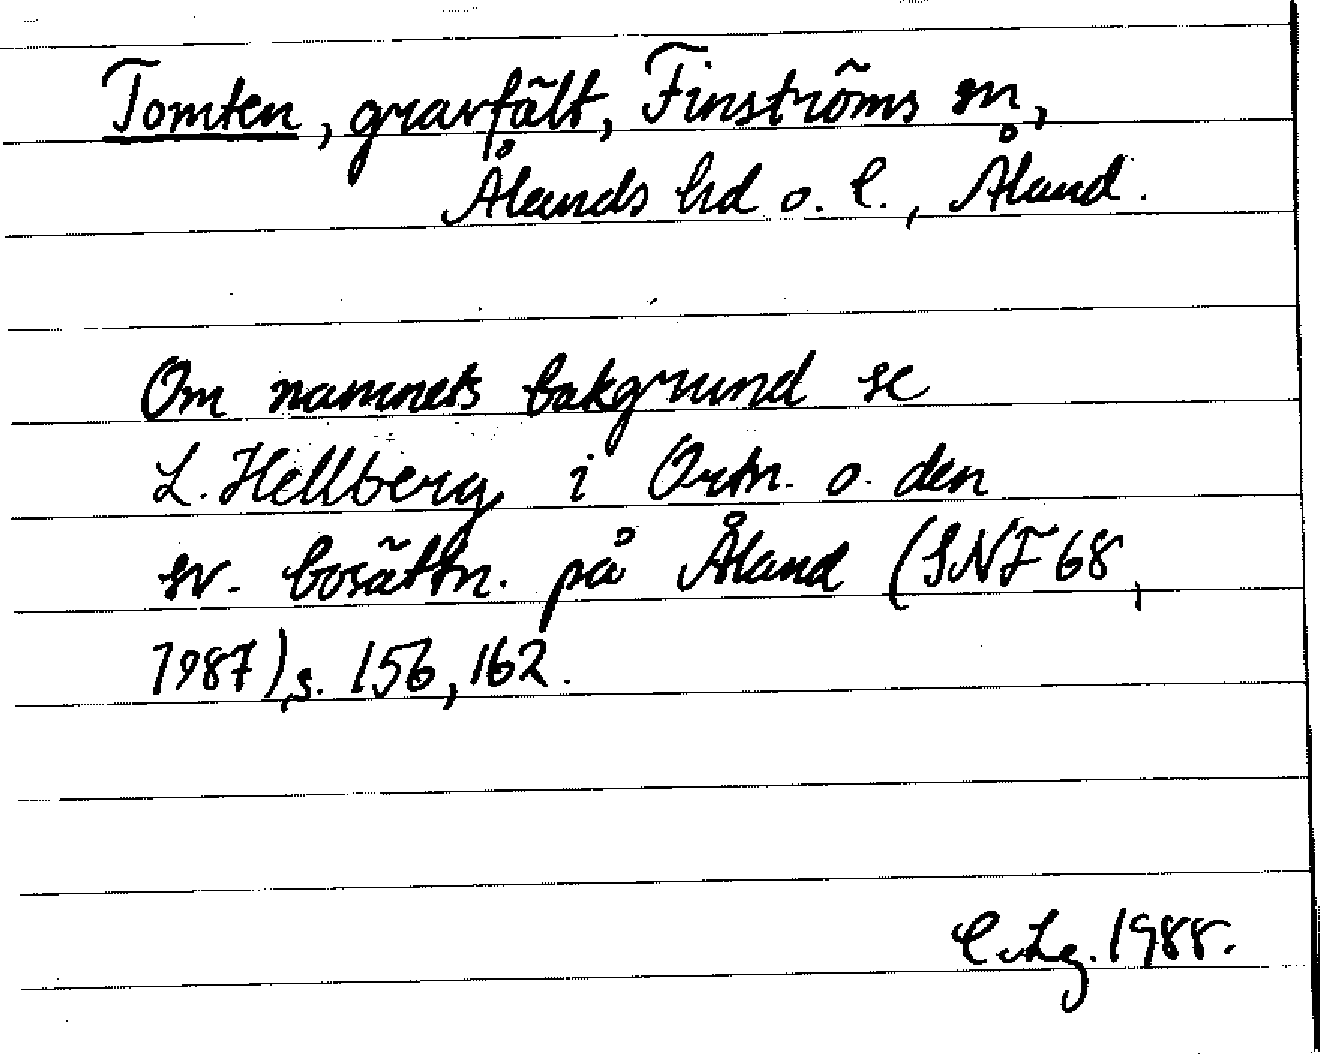 Tomten, gravfält, Finströms sn,
Ålands hd o. l., Åland.
Om namnets bakgrund se
L. Hellberg i Ortn. o. den
sv. bosättn. på Åland (SNF 68,
1987), s. 156, 162.
C. Lg. 1988.